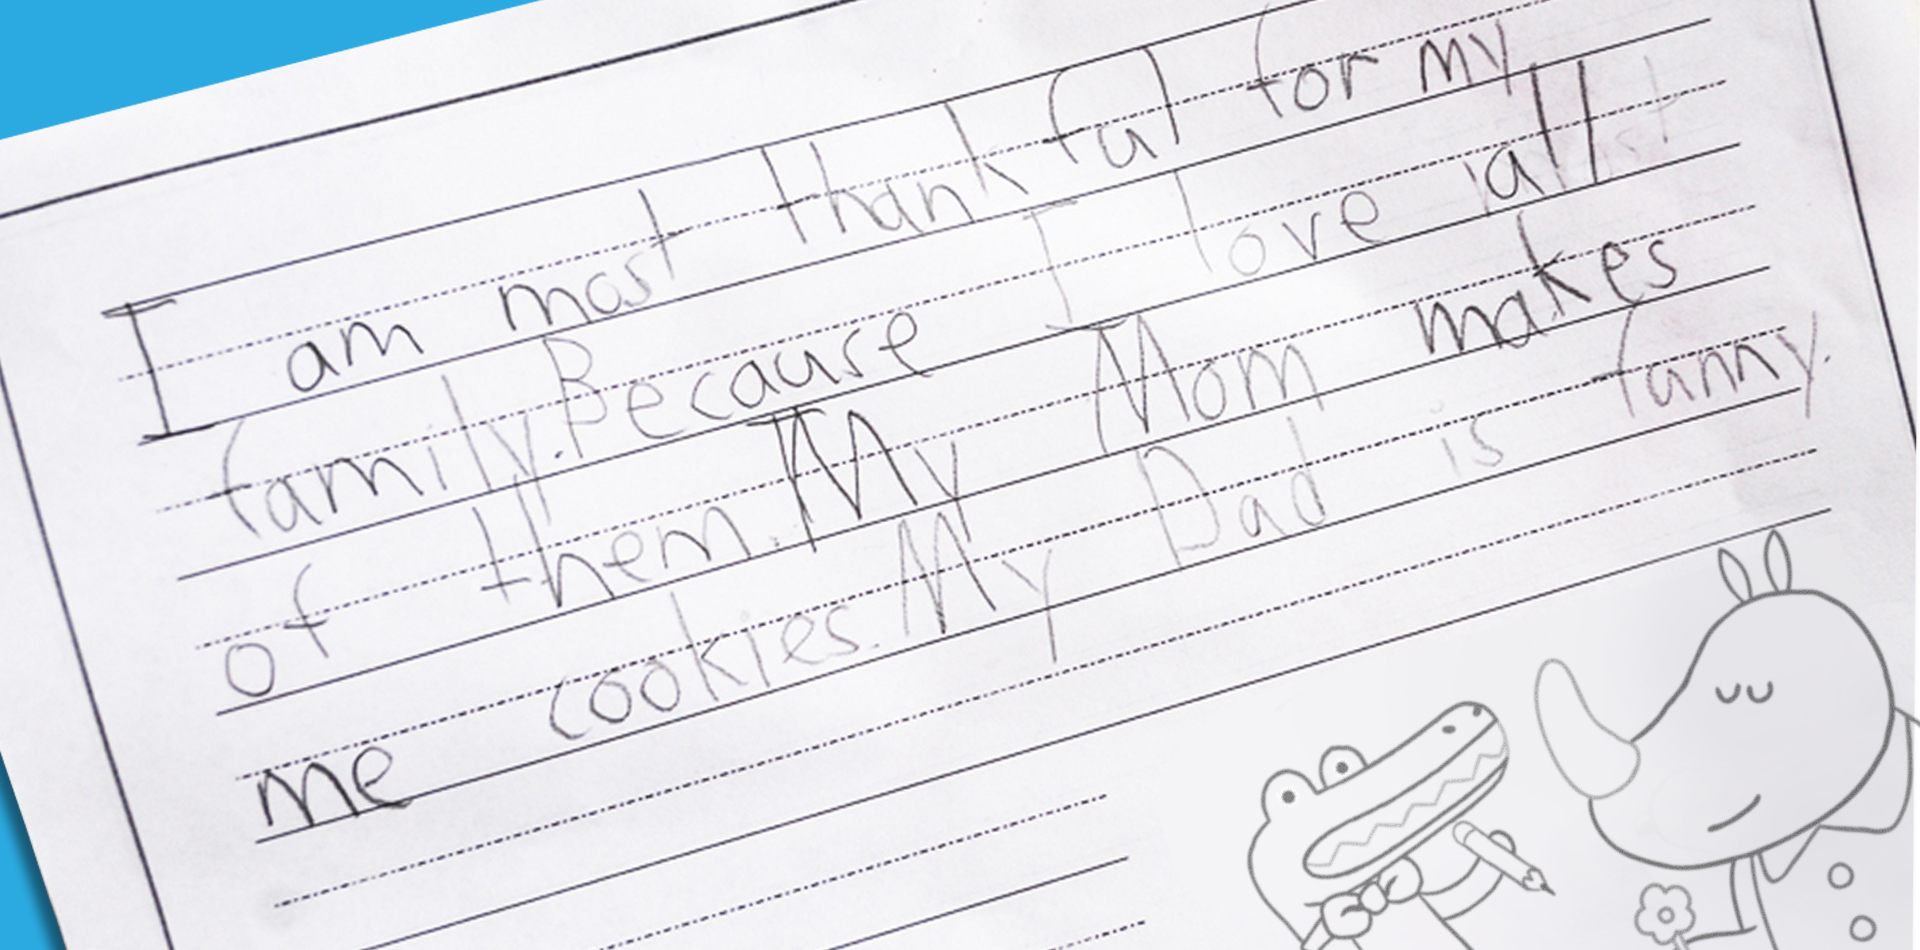 I am most thankful for my
family. Because I love all
of them. My Mom makes
me cookies. My Dad is funny.